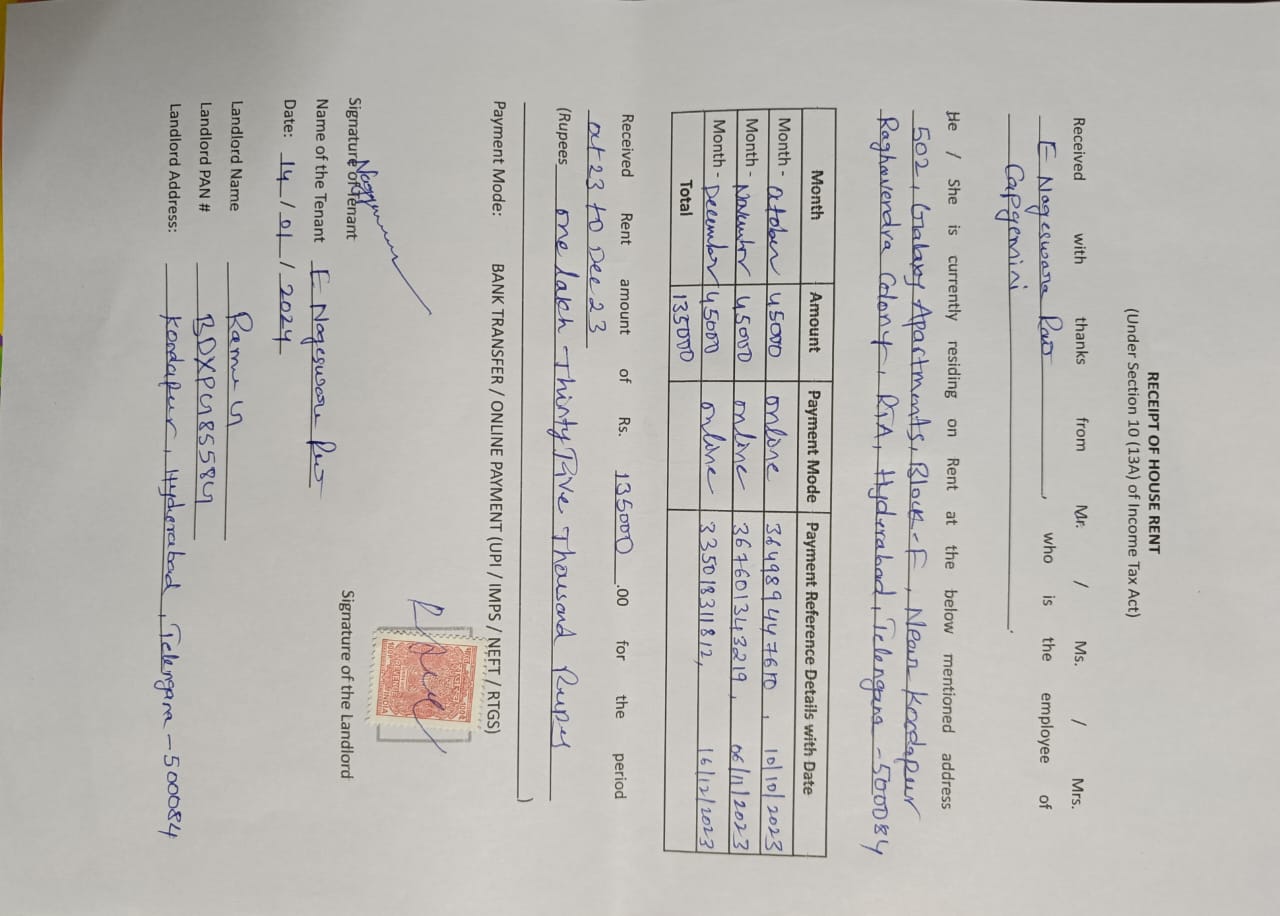 RECEIPT OF HOUSE RENT
(Under Section 10 (13A) of Income Tax Act)
Received with thanks from Mr. / Ms. / Mrs.
E Nageswara Rao, who is the employee of
Capgemini.
He / She is currently residing on Rent at the below mentioned address
502, Galaxy Apartments, Block-F, Near Kondapur
Raghavendra Colony, RTA, Hyderabad, Telengana - 500084
Month Amount Payment Mode Payment Reference Details with Date
Month - October 45000 online 364989447610, 10/10/2023
Month - November 45000 online 367601343219, 06/11/2023
Month - December 45000 online 335018311812, 16/12/2023
Total 135000
Received Rent amount of Rs. 135000 .00 for the period
oct 23 to Dec 23
(Rupees one lakh Thirty Five Thousand Rupes
)
Payment Mode: BANK TRANSFER / ONLINE PAYMENT (UPI / IMPS / NEFT / RTGS)
भारत 100₹
REVENUE
100₹ INDIA
Signature of Tenant Signature of the Landlord
Name of the Tenant E Nageswara Rao
Date: 14 / 01 / 2024
Landlord Name Ramu G
Landlord PAN #
Landlord Address: Kondapur, Hyderabad, Telengana - 500084